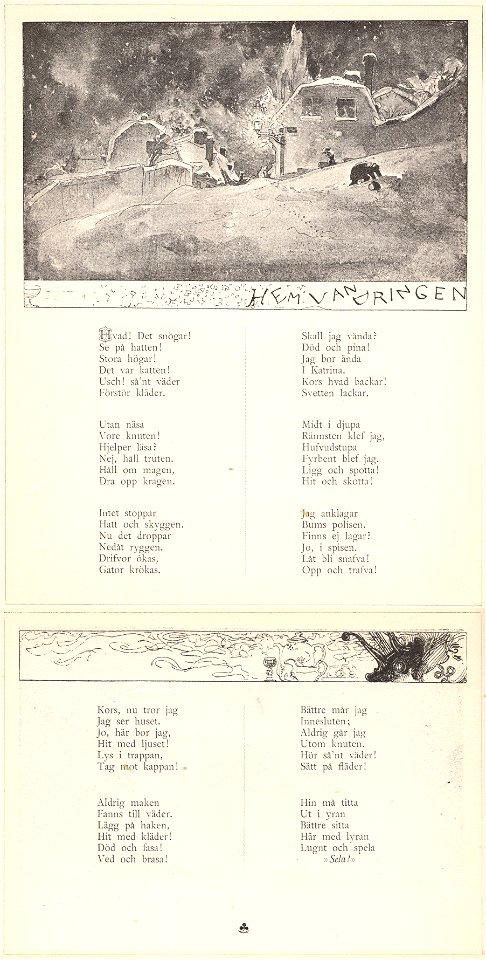 HEMVANDRINGEN
Hvad! Det snögar!
Se på hatten!
Stora högar!
Det var katten!
Usch! så'nt väder
Förstör kläder.
Utan näsa
Vore knuten!
Hjelper läsa?
Nej, håll truten.
Håll om magen,
Dra opp kragen.
Intet stoppar
Hatt och skyggen.
Nu det droppar
Nedåt ryggen.
Drifvor ökas,
Gator krökas.
Skall jag vända?
Död och pina!
Jag bor ända
I Katrina.
Kors hvad backar!
Svetten lackar.
Midt i djupa
Rännsten klef jag,
Hufvudstupa
Fyrbent blef jag.
Ligg och spotta!
Hit och skotta!
Jag anklagar
Bums polisen.
Finns ej lagar?
Jo, i spisen.
Låt bli snafva!
Opp och trafva!
Kors, nu tror jag
Jag ser huset.
Jo, här bor jag,
Hit med ljuset!
Lys i trappan,
Tag mot kappan!
Aldrig maken
Fanns till väder.
Lägg på haken,
Hit med kläder!
Död och fasa!
Ved och brasa!
Bättre mår jag
Innesluten;
Aldrig går jag
Utom knuten.
Hör så'nt väder!
Sätt på fläder!
Hin må titta
Ut i yran
Bättre sitta
Här med lyran
Lugnt och spela
»Sela!»